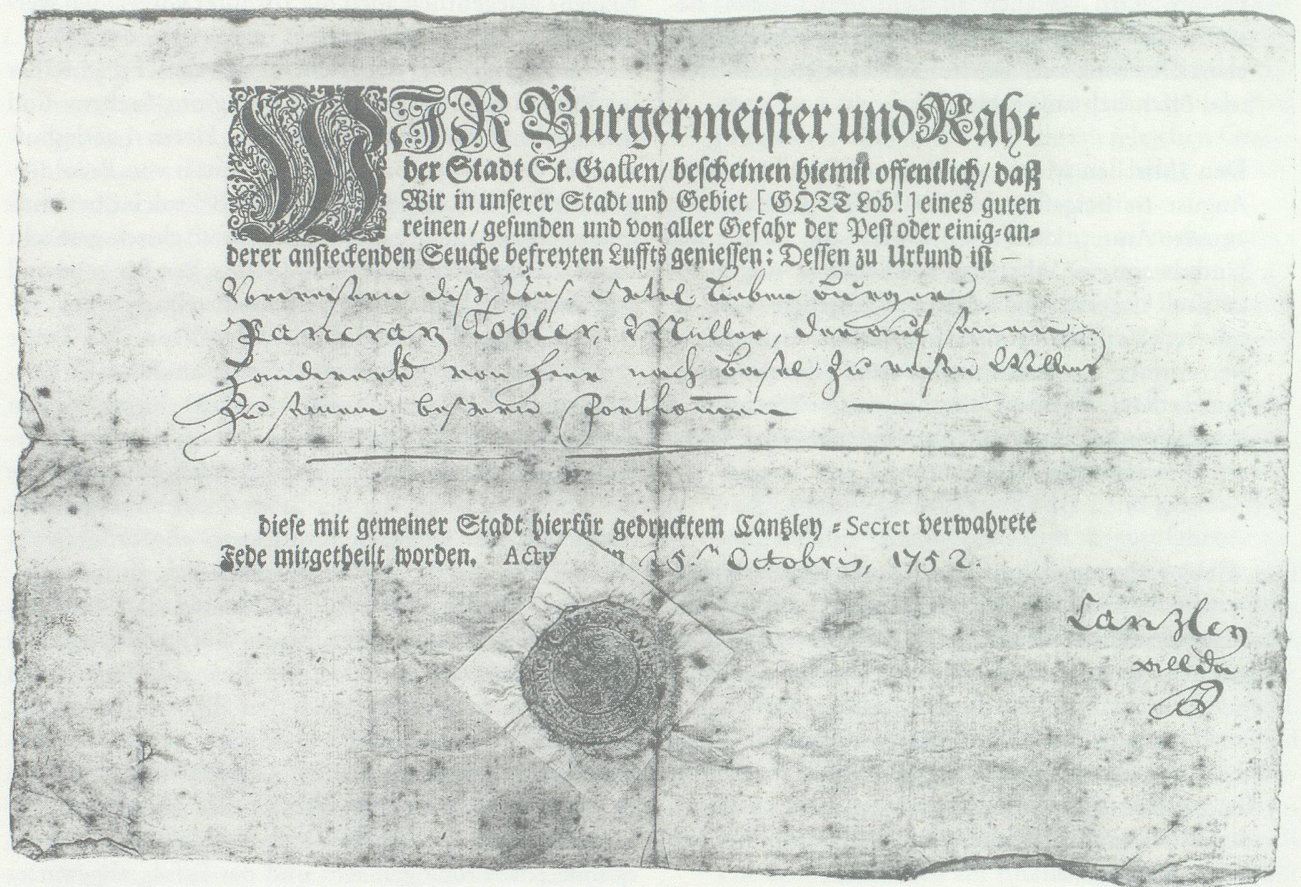 WIR Burgermeister und Raht
der Stadt St. Gallen/ bescheinen hiemit offentlich/ daß
Wir in unserer Stadt und Gebiet [GOTT Lob!] eines guten
reinen/ gesunden und von aller Gefahr der Pest oder einig-an-
derer ansteckenden Seuche befreyten Luffts geniessen: Dessen zu Urkund ist
diß, Uns lieben burger
Pancraz Tobler, Müller, der auf seinem
Handwerk von hier nach Basel zu reisen Willens
zu seinem bessern Forthommen
diese mit gemeiner Stadt hierfür gedrucktem Cantzley-Secret verwahrete
Fede mitgetheilt worden. Octobris, 1752.
Canzley